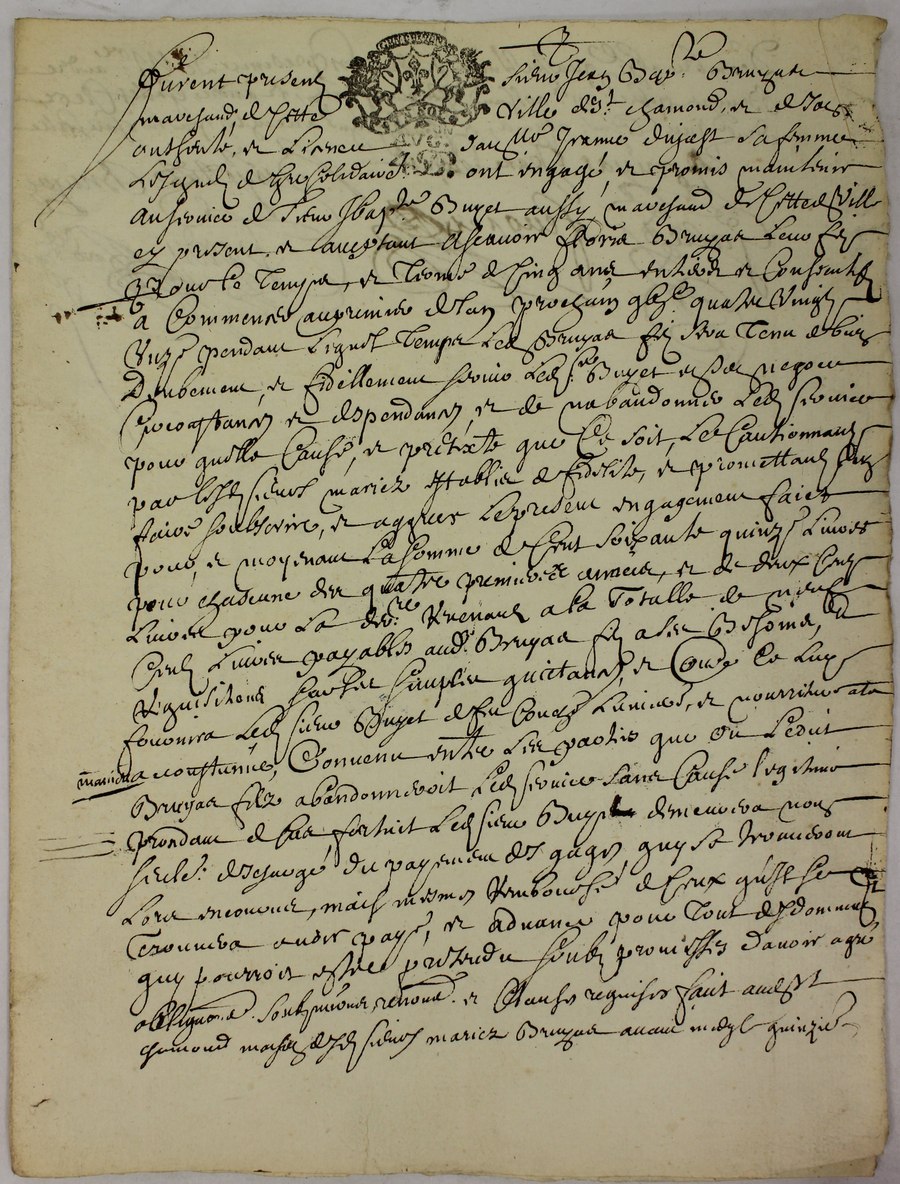 Furent presens sieur Jean Bap.te Bruyas
marchand de cette ville de St chamond, et de son
authorité, et licence dam.lle Jeanne dujast sa femme
Lesquels de gré solidaire ont engagé, et promis maintenir
au service de sieur Jbap.te Buyet aussy marchand de cette d. Ville
cy present et acceptant Ascavoir Bruyas Leur fils
pour le Temps, et Terme de Cinq ans entiers et Consecutifs
a Commencer au premier de l'an prochain quatre Vingts
Unze pendant Lequel Temps Led. Bruyas fils sera Tenu de bien
Deubement, et fidellement servir Led. s.r Buyet en son negoce
Circonstances et despendances, et de n'abandonner Led. service
pour quelle Cause, et pretexte que Ce soit, Le Cautionnants
par lesd. sieurs mariez establir de fidelité, et promettants
faire soubscrire, et agreer Le present engagement faict
pour, et moyenant La somme de Cent soixante quinze Livres
pour chascune des quatre premieres années, et de deux Cents
Livres pour La der.re Revenants a la Totalle de neuf
Cents Livres payables aud. Bruyas fils a ses Besoins, et
Requisitions sur ses simples quittances, et Outre Ce Luy
fournira Led. sieur Buyet de feu Couche Lumiere, et nourriture a la
maniere acoustumée, Convenu entre Les parties que ou Ledit
Bruyas fils abandonneroit Led. service sans Cause legitime
provenant de Cas fortuit Led. sieur Buyet demeurera non
seulem.t deschargé du payement des gages, quy se trouveront
Lors encourus, mais mesmes Remboursé de Ceux qu'il se
Trouvera avoir payé, et advancé pour Tout desdommag.
quy pourroit estre pretendu soubs promesses d'avoir agré
obligaons. soubmissions, renonc. et Clauses requises fait aud. St
chamond maison desd. sieurs mariez Bruyas avant midy le quinzie